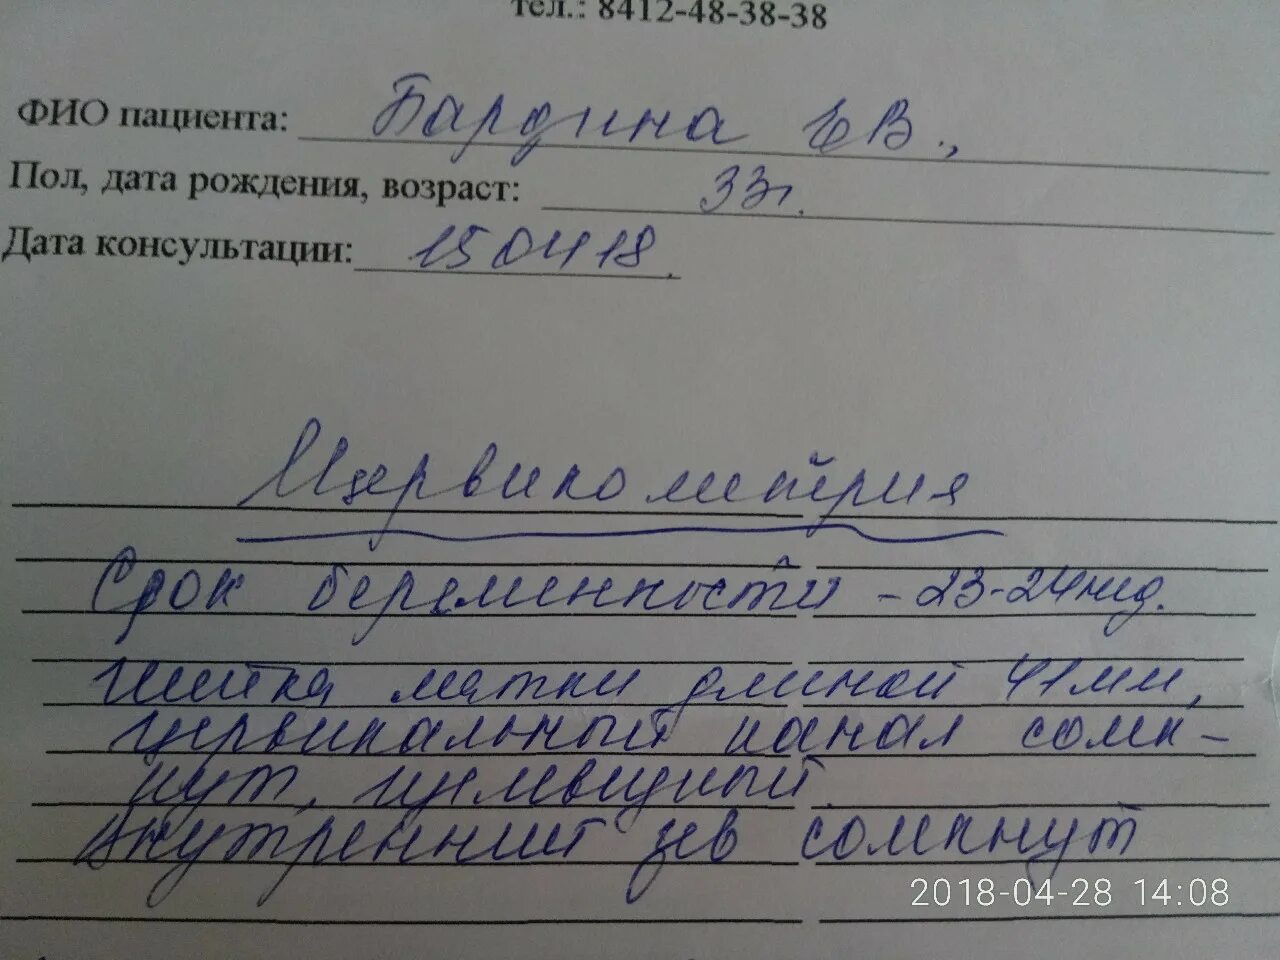 тел.: 8412-48-38-38
ФИО пациента: Бардина Е В.,
Пол, дата рождения, возраст: 33г.
Дата консультации: 15 04 18.
Цервикометрия
Срок беременности - 23-24 нед.
Шейка матки длиной 41 мм,
цервикальный канал сомк-
нут,
Внутренний зев сомкнут
2018-04-28 14:08